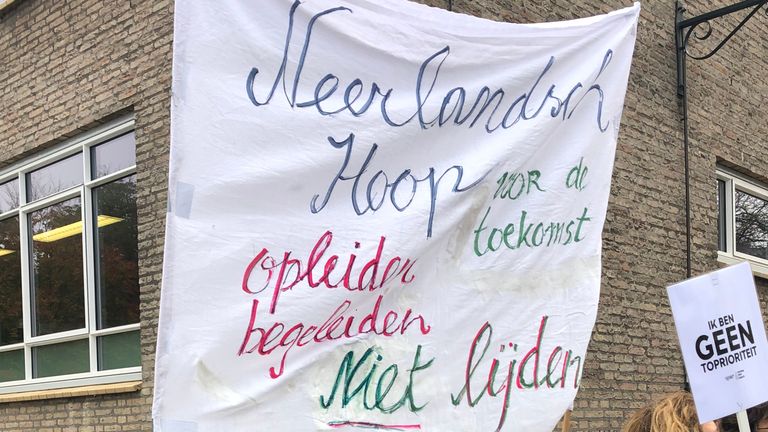 Neerlandsch
Hoop voor de
toekomst
Opleiden
begeleiden
Niet lijden
IK BEN
GEEN
TOPRIORITEIT